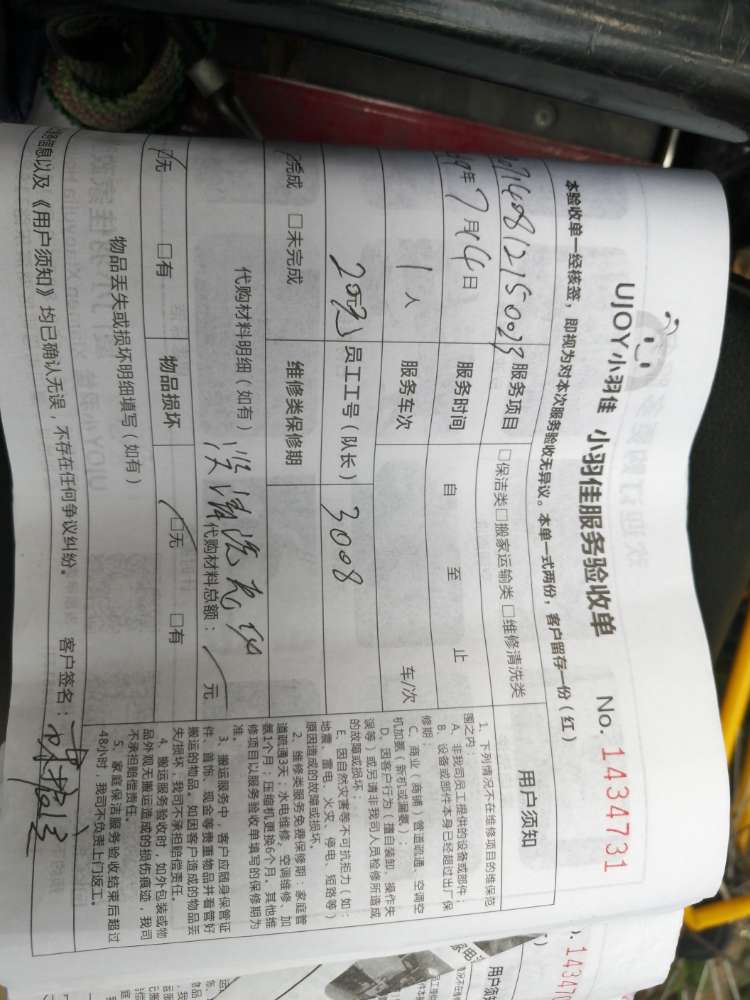 UJOY小羽佳 小羽佳服务验收单 No. 1434731
本验收单一经核签，即视为对本次服务验收无异议。本单一式两份，客户留存一份（红）
服务项目 □保洁类□搬家运输类□维修清洗类
年7月14日 服务时间 自 至 止
1人 服务车次 车/次
员工工号（队长） 3008
完成 □未完成 维修类保修期
代购材料明细（如有） 代购材料总额： 元
无 □有 物品损坏 □无 □有
物品丢失或损坏明细填写（如有）
信息以及《用户须知》均已确认无误，不存在任何争议纠纷。 客户签名：
用户须知
1、下列情况不在维修项目的维保范
围之内：
A、非我司员工提供的设备或部件；
B、设备或部件本身已经超过出厂保
修期；
C、商业（商铺）管道疏通、空调空
机加氨（新机或漏氨）；
D、因客户行为（擅自装卸、操作失
误等）或另请非我司人员检修所造成
的故障或损坏；
E、因自然灾害等不可抗拒力（如：
地震、雷电、火灾、停电、短路等）
原因造成的故障或损坏。
2、维修类服务免费保修期：家庭管
道疏通3天；水电维修、空调维修、加
氨1个月；压缩机更换6个月，其他维
修项目以服务验收单填写的保修期为
准。
3、搬运服务中，客户应随身保管证
件、首饰、现金等贵重物品并看管好
搬运的物品，如因客户造成的物品丢
失损坏，我司不承担赔偿责任。
4、搬运服务验收时，如外包装或物
品外观无搬运造成的损伤痕迹，我司
不承担赔偿责任。
5、家庭保洁服务验收结束后超过
48小时，我司不负责上门返工。